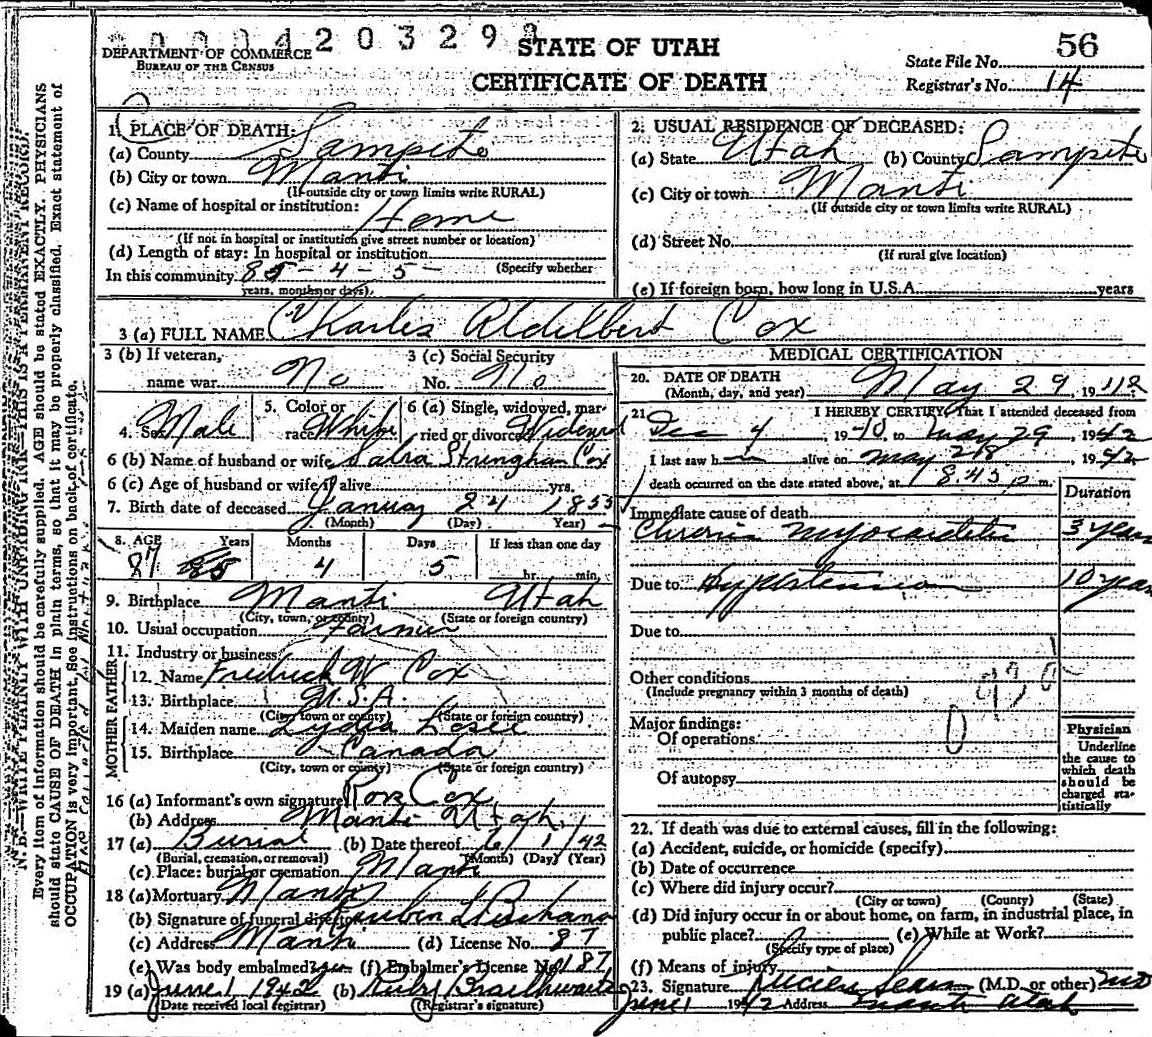 STATE OF UTAH
CERTIFICATE OF DEATH
DEPARTMENT OF COMMERCE
BUREAU OF THE CENSUS
State File No. 56
Registrar's No. 14
N. B.—WRITE PLAINLY WITH UNFADING INK—THIS IS A PERMANENT RECORD.
Every item of information should be carefully supplied. AGE should be stated EXACTLY. PHYSICIANS
should state CAUSE OF DEATH in plain terms, so that it may be properly classified. Exact statement of
OCCUPATION is very important. See instructions on back of certificate.
1. PLACE OF DEATH:
(a) County Sanpete
(b) City or town Manti
(If outside city or town limits write RURAL)
(c) Name of hospital or institution:
Home
(If not in hospital or institution give street number or location)
(d) Length of stay: In hospital or institution
(Specify whether
In this community 85-4-5-
years, months or days)
2. USUAL RESIDENCE OF DECEASED:
(a) State Utah (b) County Sanpete
(c) City or town Manti
(If outside city or town limits write RURAL)
(d) Street No.
(If rural give location)
(e) If foreign born, how long in U.S.A. years
3 (a) FULL NAME Charles Aldelbert Cox
3 (b) If veteran,
name war No
3 (c) Social Security
No. No
4. Sex Male
5. Color or
race White
6 (a) Single, widowed, mar-
ried or divorced Widowed
6 (b) Name of husband or wife Stringham Cox
6 (c) Age of husband or wife if alive yrs.
7. Birth date of deceased January 24 1855
(Month) (Day) Year)
8. AGE Years Months Days If less than one day
87 85 4 5 hr. min.
9. Birthplace Manti Utah
(City, town, or county) (State or foreign country)
10. Usual occupation Farmer
11. Industry or business
FATHER
12. Name Fredrick W Cox
13. Birthplace U.S.A.
(City, town or county) (State or foreign country)
MOTHER
14. Maiden name Lydia Losee
15. Birthplace Canada
(City, town or county) (State or foreign country)
16 (a) Informant's own signature Cox
(b) Address Manti Utah
17 (a) Burial (b) Date thereof 6/1/42
(Burial, cremation, or removal) (Month) (Day) (Year)
(c) Place: burial or cremation Manti
18 (a) Mortuary Manti
(b) Signature of funeral director
(c) Address Manti (d) License No. 87
(e) Was body embalmed? yes (f) Embalmer's License No. 187
19 (a) June 1 1942 (b) Ruby Braithwaite
(Date received local registrar) (Registrar's signature)
MEDICAL CERTIFICATION
20. DATE OF DEATH
(Month, day, and year) May 29, 1942
21. I HEREBY CERTIFY, That I attended deceased from
Dec 4, 1940, to May 29, 1942
I last saw h alive on May 28, 1942
death occurred on the date stated above, at 8.45 p m.
Duration
Immediate cause of death
Chronic Myocarditis 3 years
Due to Hypertension 10 years
Due to
Other conditions
(Include pregnancy within 3 months of death)
Major findings:
Of operations
Of autopsy
Physician
Underline
the cause to
which death
should be
charged sta-
tistically
22. If death was due to external causes, fill in the following:
(a) Accident, suicide, or homicide (specify)
(b) Date of occurrence
(c) Where did injury occur?
(City or town) (County) (State)
(d) Did injury occur in or about home, on farm, in industrial place, in
public place? (e) While at Work?
(Specify type of place)
(f) Means of injury
23. Signature Lucien Sears (M.D. or other) MD
June 1 1942 Address Manti Utah